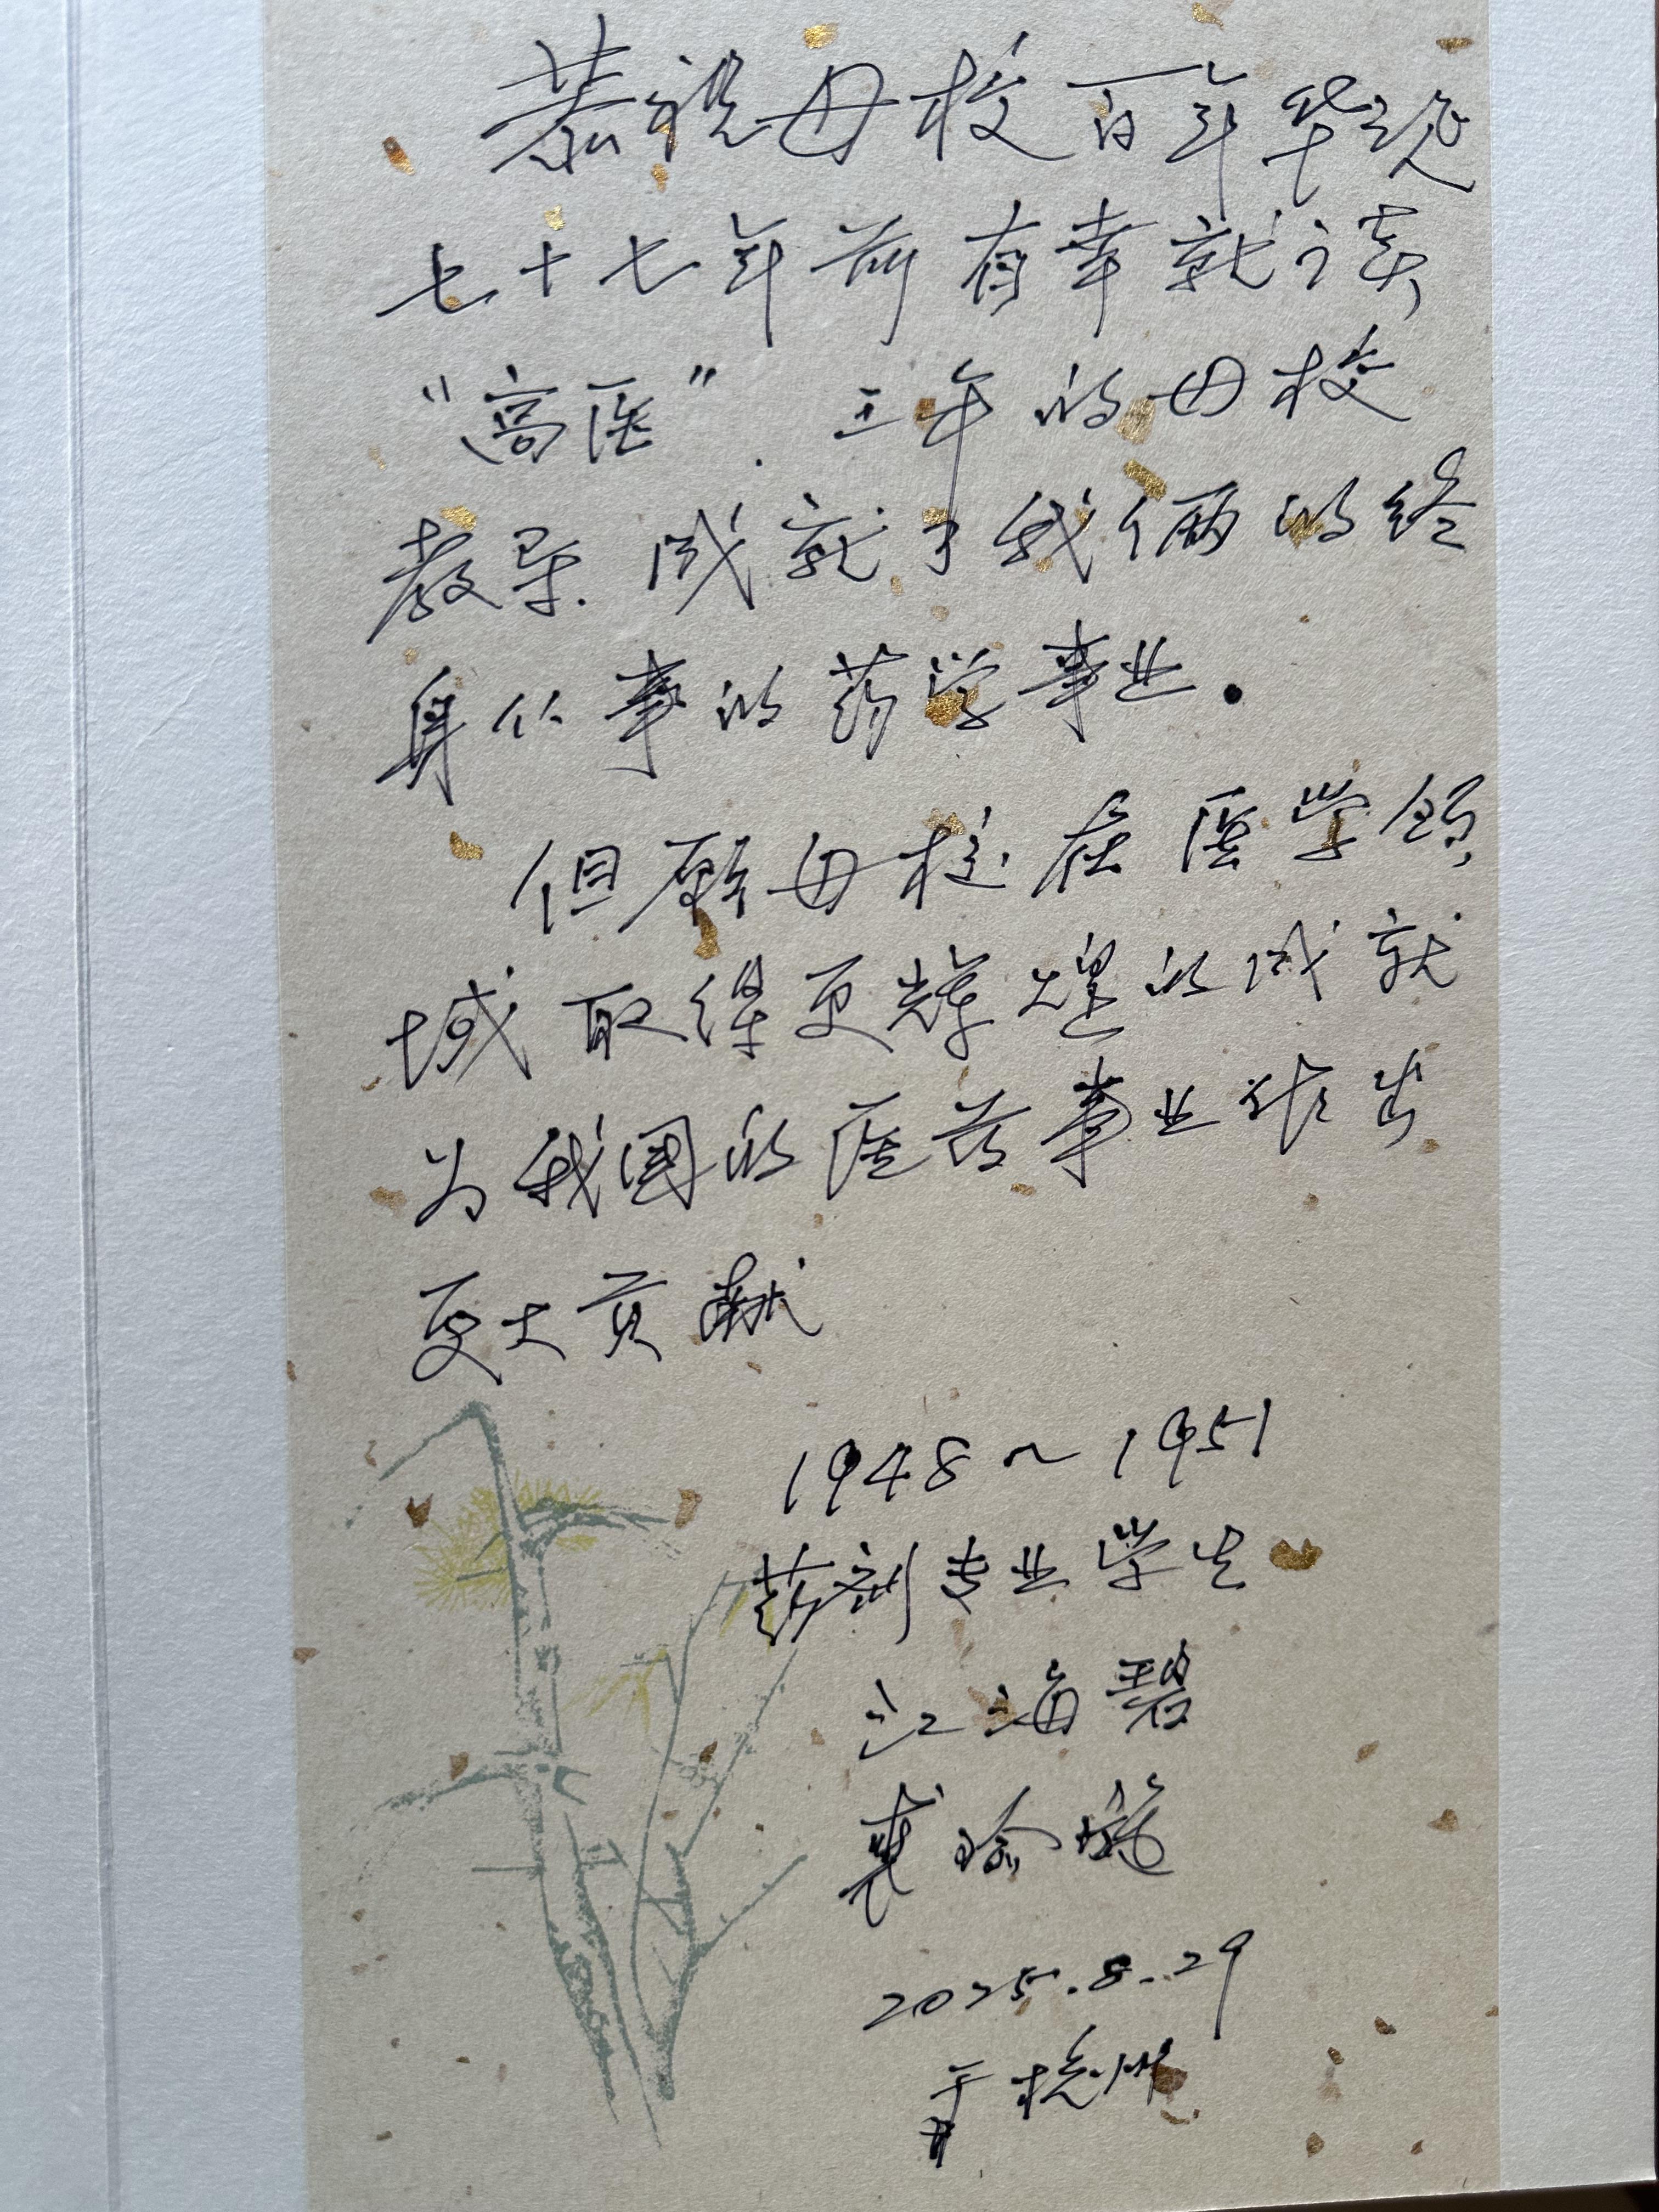 恭祝母校百年华诞
七十七年前有幸就读
“高医”.三年的母校
教导.成就了我俩的终
身从事的药学事业.
但愿母校在医学领
域取得更辉煌的成就
为我国的医药事业作出
更大贡献
1948~1951
药剂专业学生
江海碧
裘
2025.8.29
于杭州